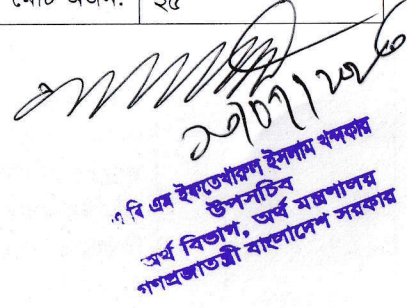 মোট অর্জন: ২৫
এ বি এম ইফতেখারুল ইসলাম খন্দকার
উপসচিব
অর্থ বিভাগ, অর্থ মন্ত্রণালয়
গণপ্রজাতন্ত্রী বাংলাদেশ সরকার